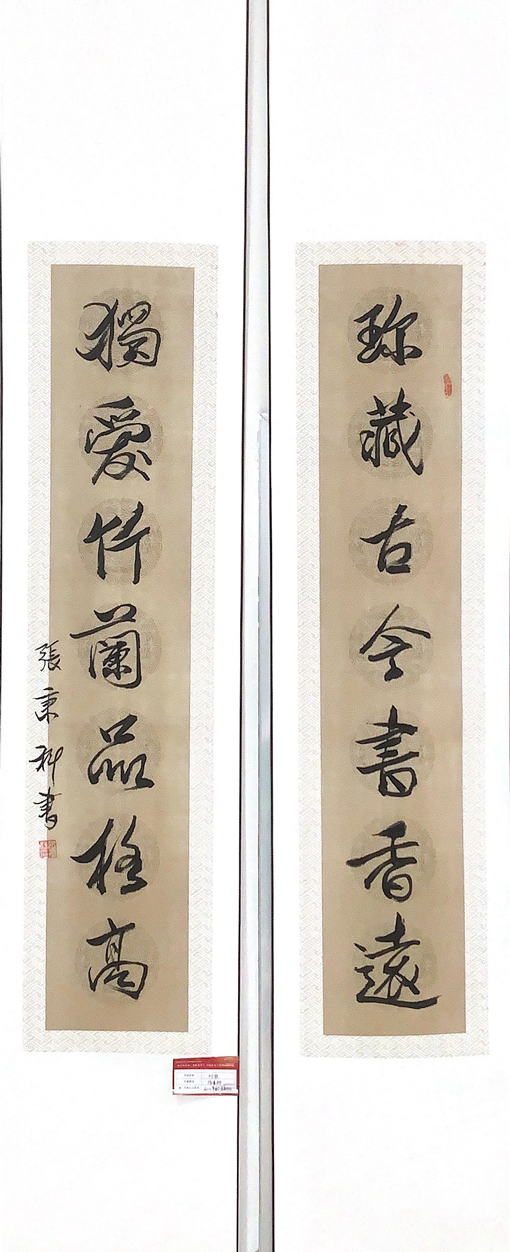 珍藏古今書香遠
獨愛竹蘭品格高
張秉科書